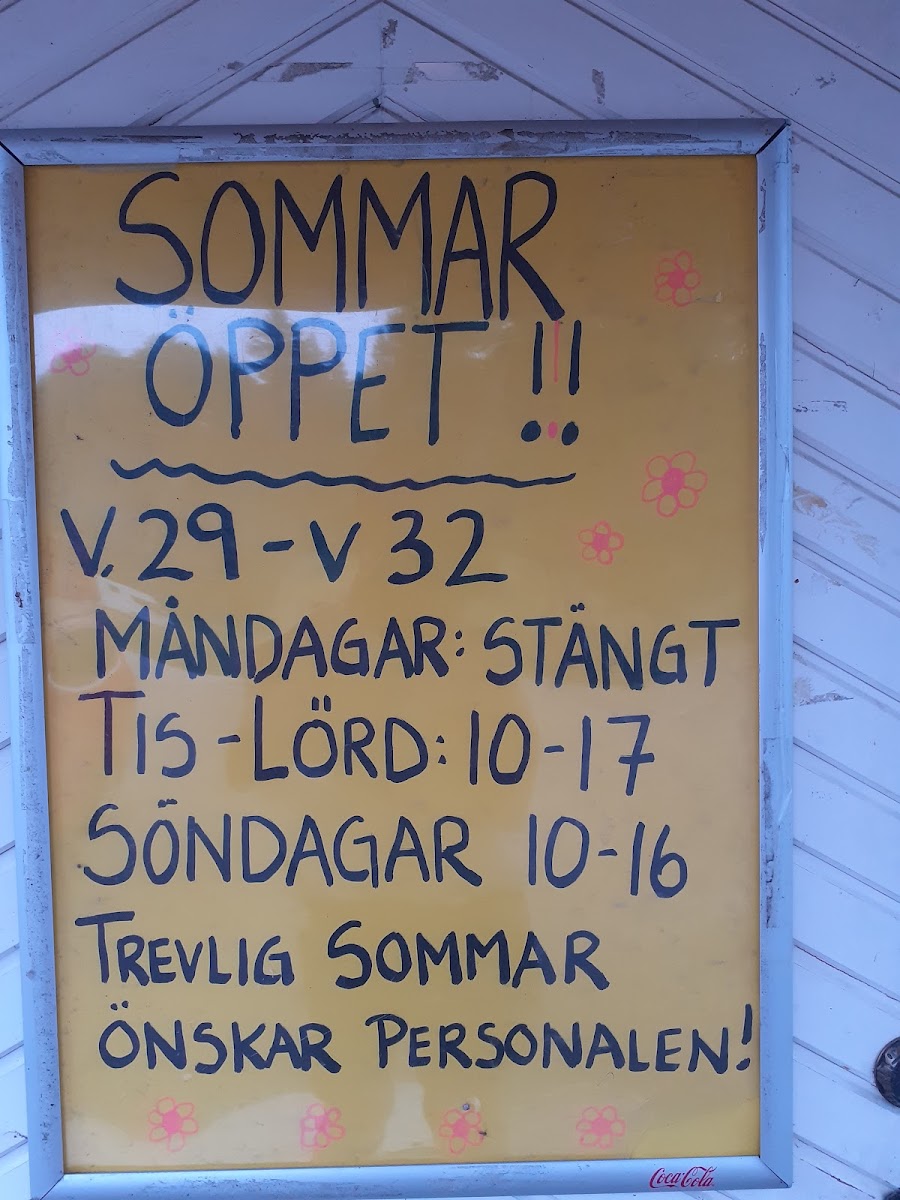 SOMMAR
ÖPPET !!!
V. 29 - V 32
MÅNDAGAR: STÄNGT
TIS - LÖRD: 10-17
SÖNDAGAR 10-16
TREVLIG SOMMAR
ÖNSKAR PERSONALEN!
Coca-Cola